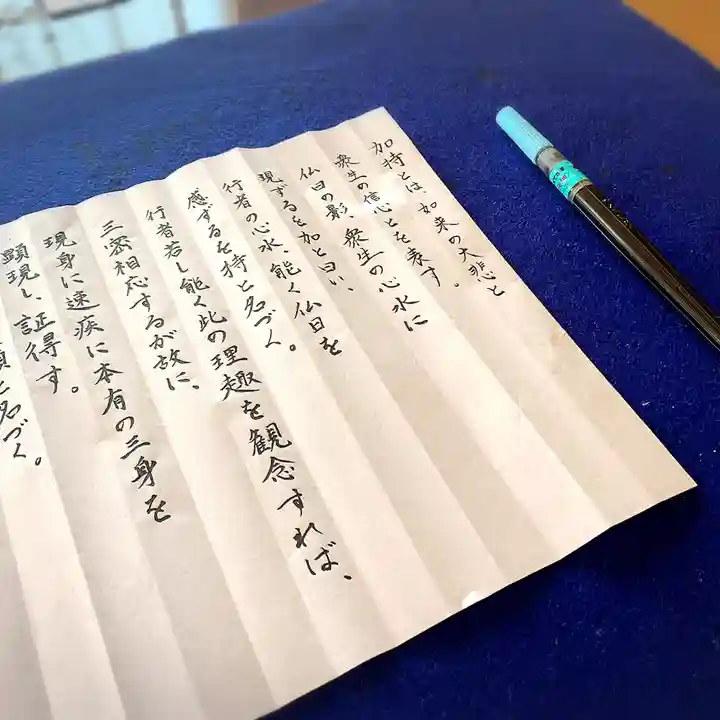 加持とは、如来の大悲と
衆生の信心とを表す。
仏日の影、衆生の心水に
現ずるを加と曰い、
行者の心水、能く仏日を
感ずるを持と名づく。
行者若し能く此の理趣を観念すれば、
三密相応するが故に、
現身に速疾に本有の三身を
顕現し、証得す。
と名づく。